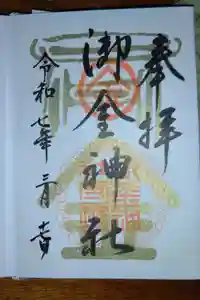 奉拝
御金神社
令和七年 三月 吉日